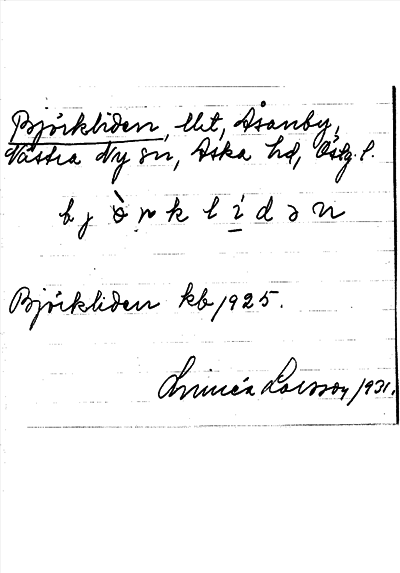 Björkliden, llet, Åsanby,
Västra Ny sn, Aska hd, Östg. l.
bjòrklídən
Björkliden kb 1925.
Linnéa Larsson 1931.